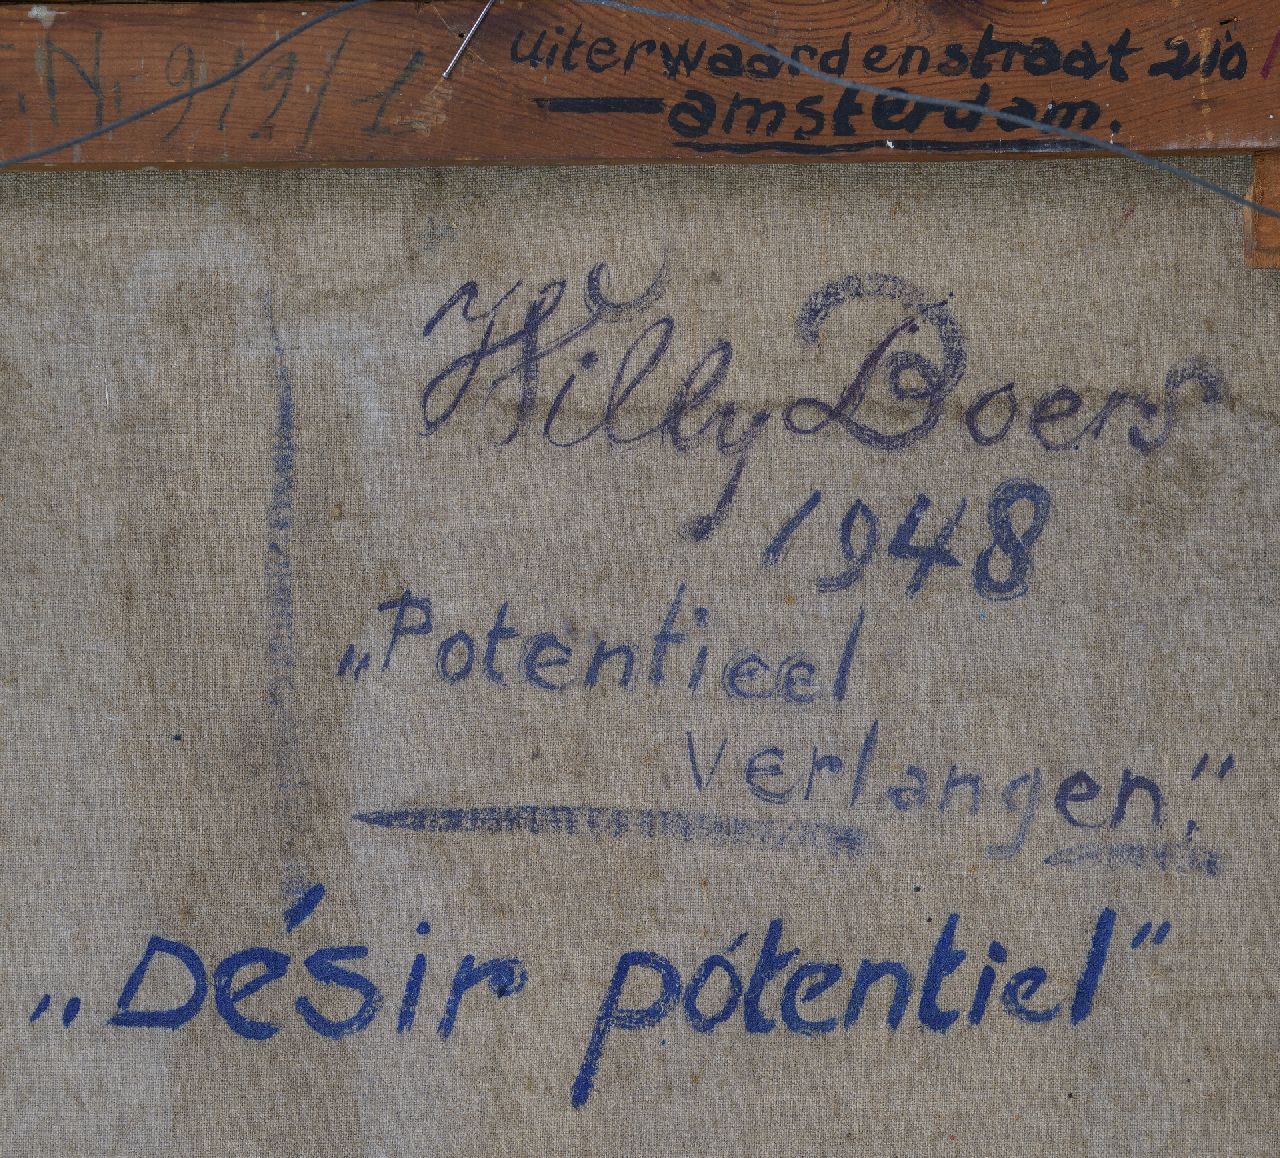 N. 919/1
uiterwaardenstraat 210
amsterdam.
Willy Boers
1948
„Potentieel
verlangen."
„Désir pótentiel"